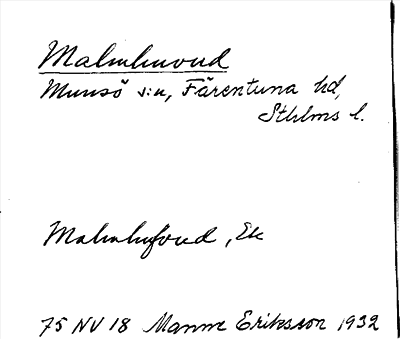 Malmhuvud
Munsö s:n, Färentuna hd,
Sthlms l.
Malmhuvud, Ek
75 NV 18 Manne Eriksson 1932